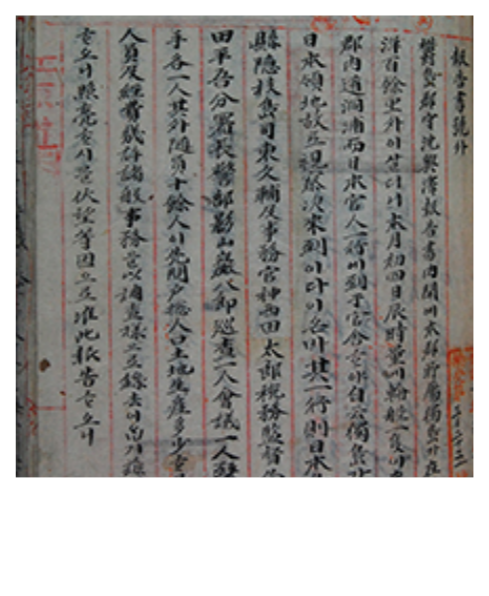 報告書號外
鬱島郡守沈興澤報告書內開에本郡所屬獨島가在
洋百餘里外이살더니本月初四日辰時量에輪船一隻이
郡內道洞浦而日本官人一行에到于官舍ᄒᆞ야自云獨島가
日本領地故로視察次來到이다이온바其一行則日本
縣隱岐島司東文輔及事務官神西田太郎稅務監督
田平吾分署長警部影山巖八郎巡査一人會議一人醫
手各一人其外隨員十餘人이先問戶摠人口土地生産多少ᄒᆞ고
人員及經費幾許諸般事務를以調査樣으로錄去이ᄋᆞᆸ기玆
ᄒᆞ오니照亮ᄒᆞ시믈伏望等因으로准此報告ᄒᆞ오니